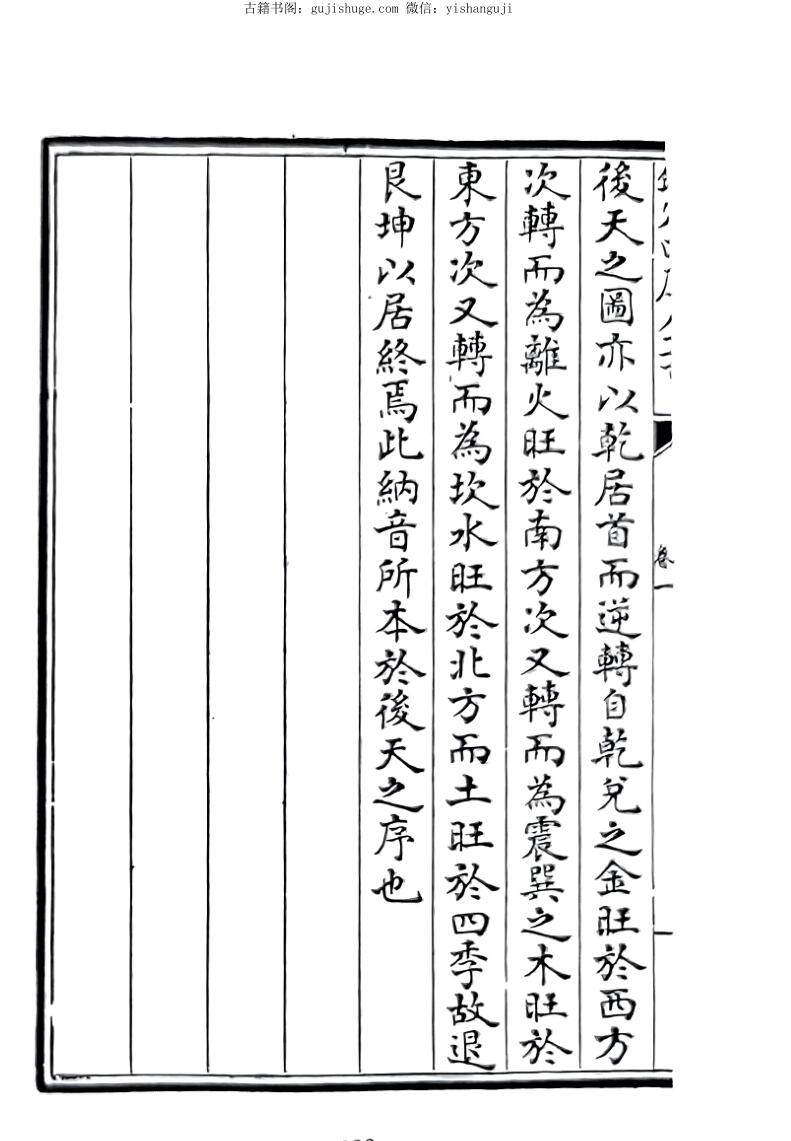 古籍书阁：gujishuge.com 微信：yishanguji
卷一
後天之圖亦以乾居首而逆轉自乾兌之金旺於西方
次轉而為離火旺於南方次又轉而為震巽之木旺於
東方次又轉而為坎水旺於北方而土旺於四季故退
艮坤以居終焉此納音所本於後天之序也